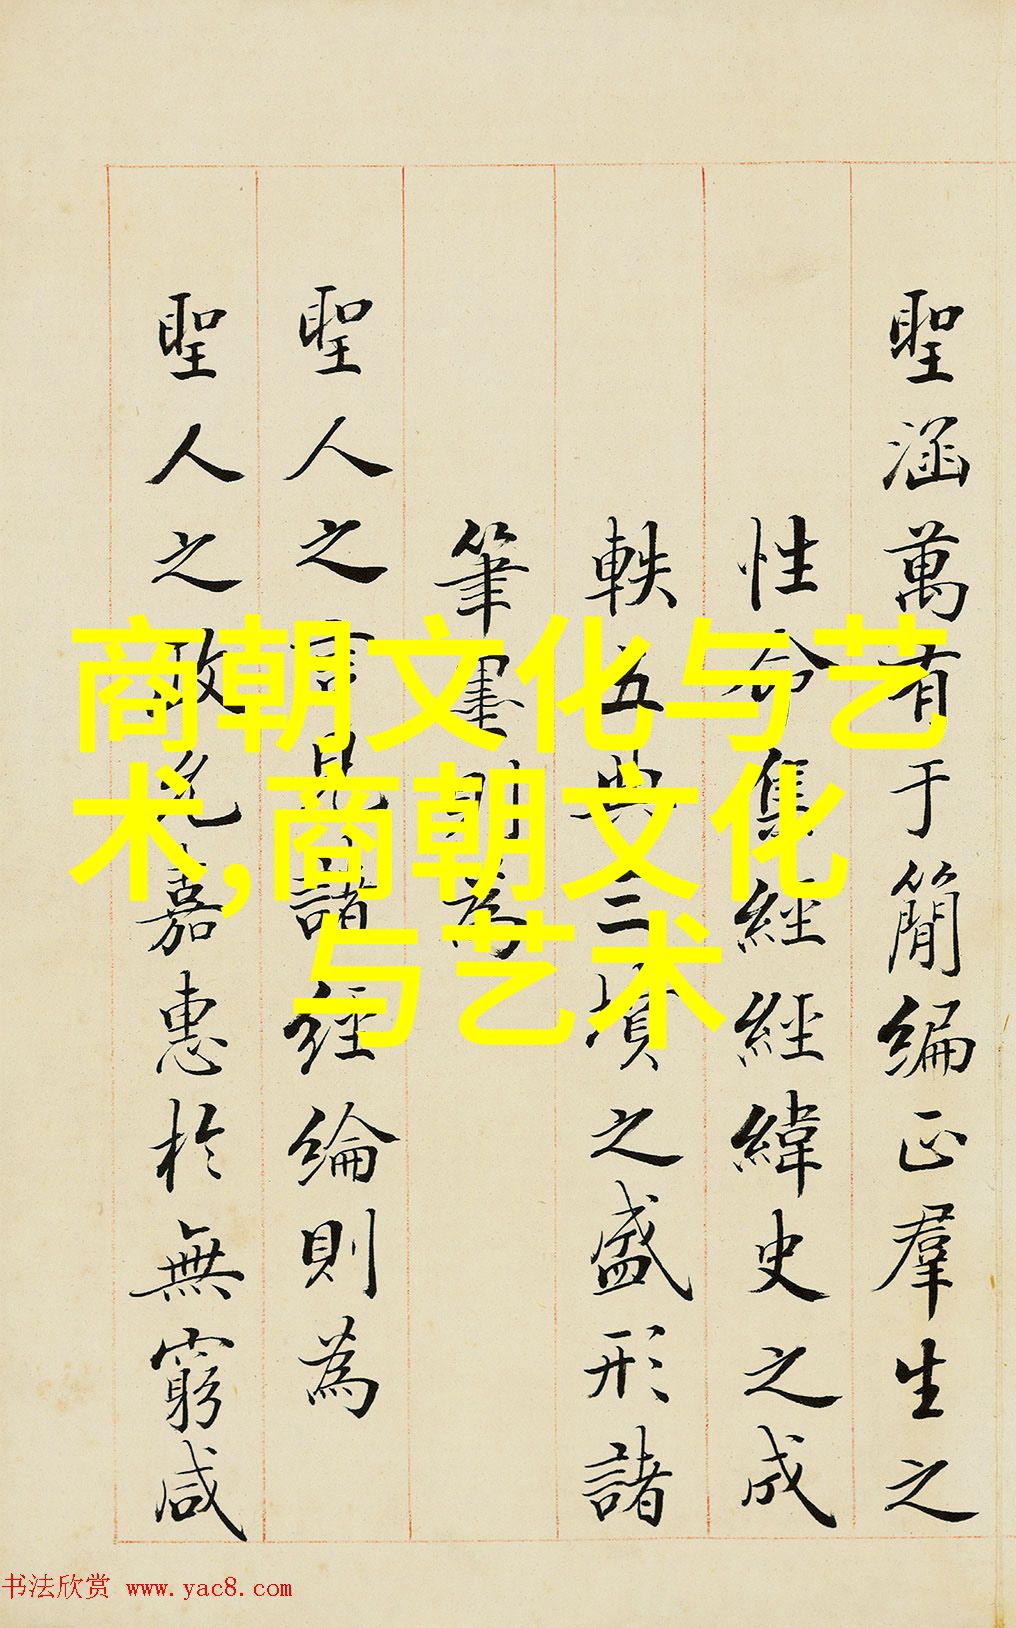 聖涵萬有于簡編正羣生之
性命集經經緯史之成
軼五典三墳之盛形諸
筆墨則為
聖人之言見諸經綸則為
聖人之政允嘉惠於無窮咸
商朝文化与艺
术,商朝文化
与艺术
书法欣赏 www.yac8.com